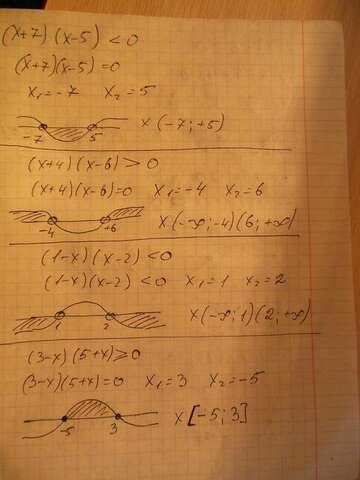 (x+7)(x-5) < 0
(x+7)(x-5) = 0
x₁ = -7 x₂ = 5
-7 5 x (-7; +5)
(x+4)(x-6) > 0
(x+4)(x-6) = 0 x₁ = -4 x₂ = 6
-4 +6 x (-∞; -4) (6; +∞)
(1-x)(x-2) < 0
(1-x)(x-2) < 0 x₁ = 1 x₂ = 2
1 2 x (-∞; 1) (2; +∞)
(3-x)(5+x) ≥ 0
(3-x)(5+x) = 0 x₁ = 3 x₂ = -5
-5 3 x [-5; 3]